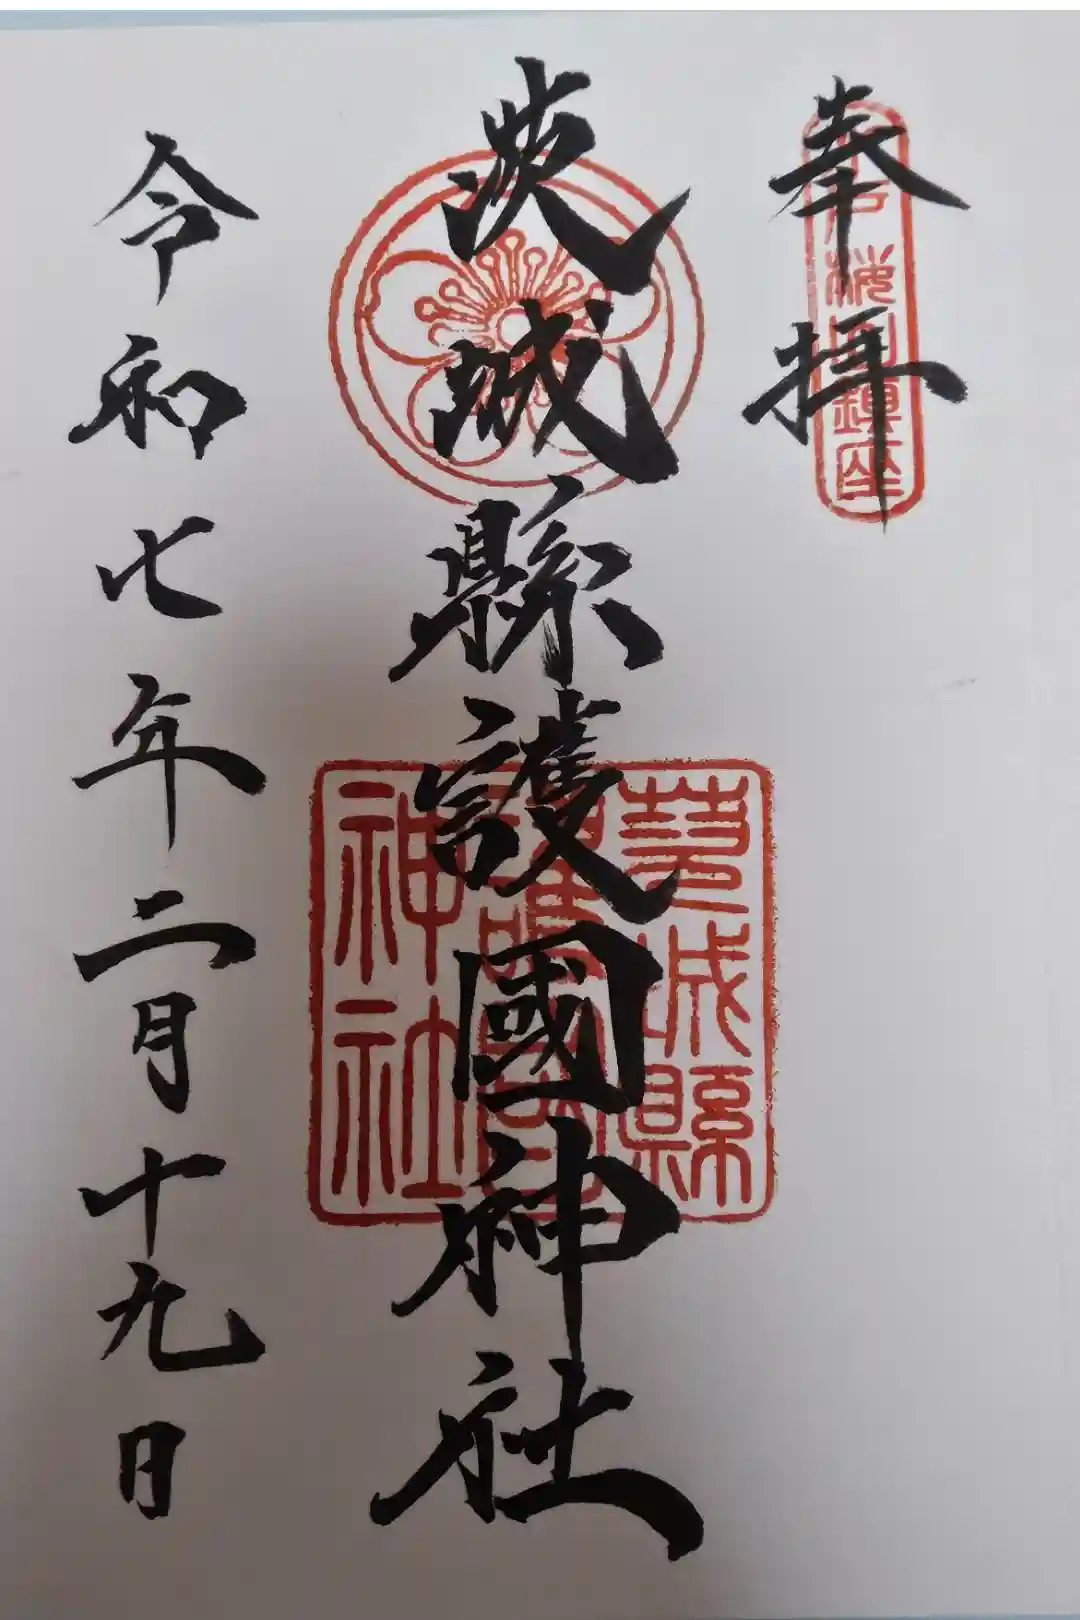 奉拝
桜川鎮座
茨城縣護國神社
茨城縣
護國
神社
令和七年二月十九日